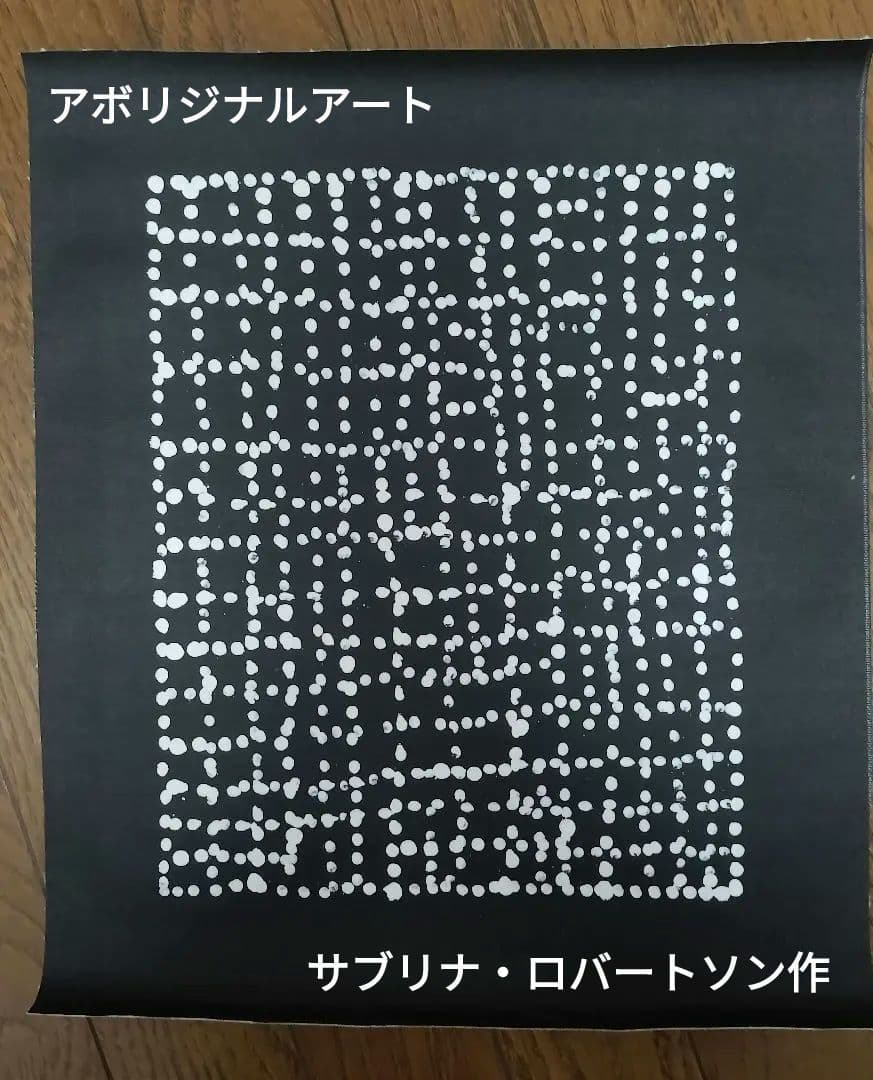 アボリジナルアート
サブリナ・ロバートソン作